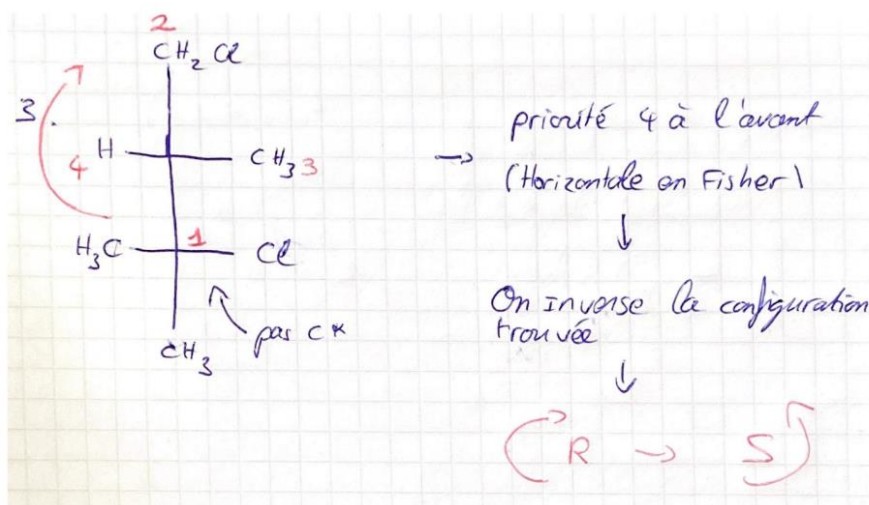 2
CH2 Cl
3.
4 H CH3 3
H3C 1 Cl
pas C*
CH3
→ priorité 4 à l'avant
(Horizontale en Fisher)
↓
On inverse la configuration
trouvée
↓
R → S